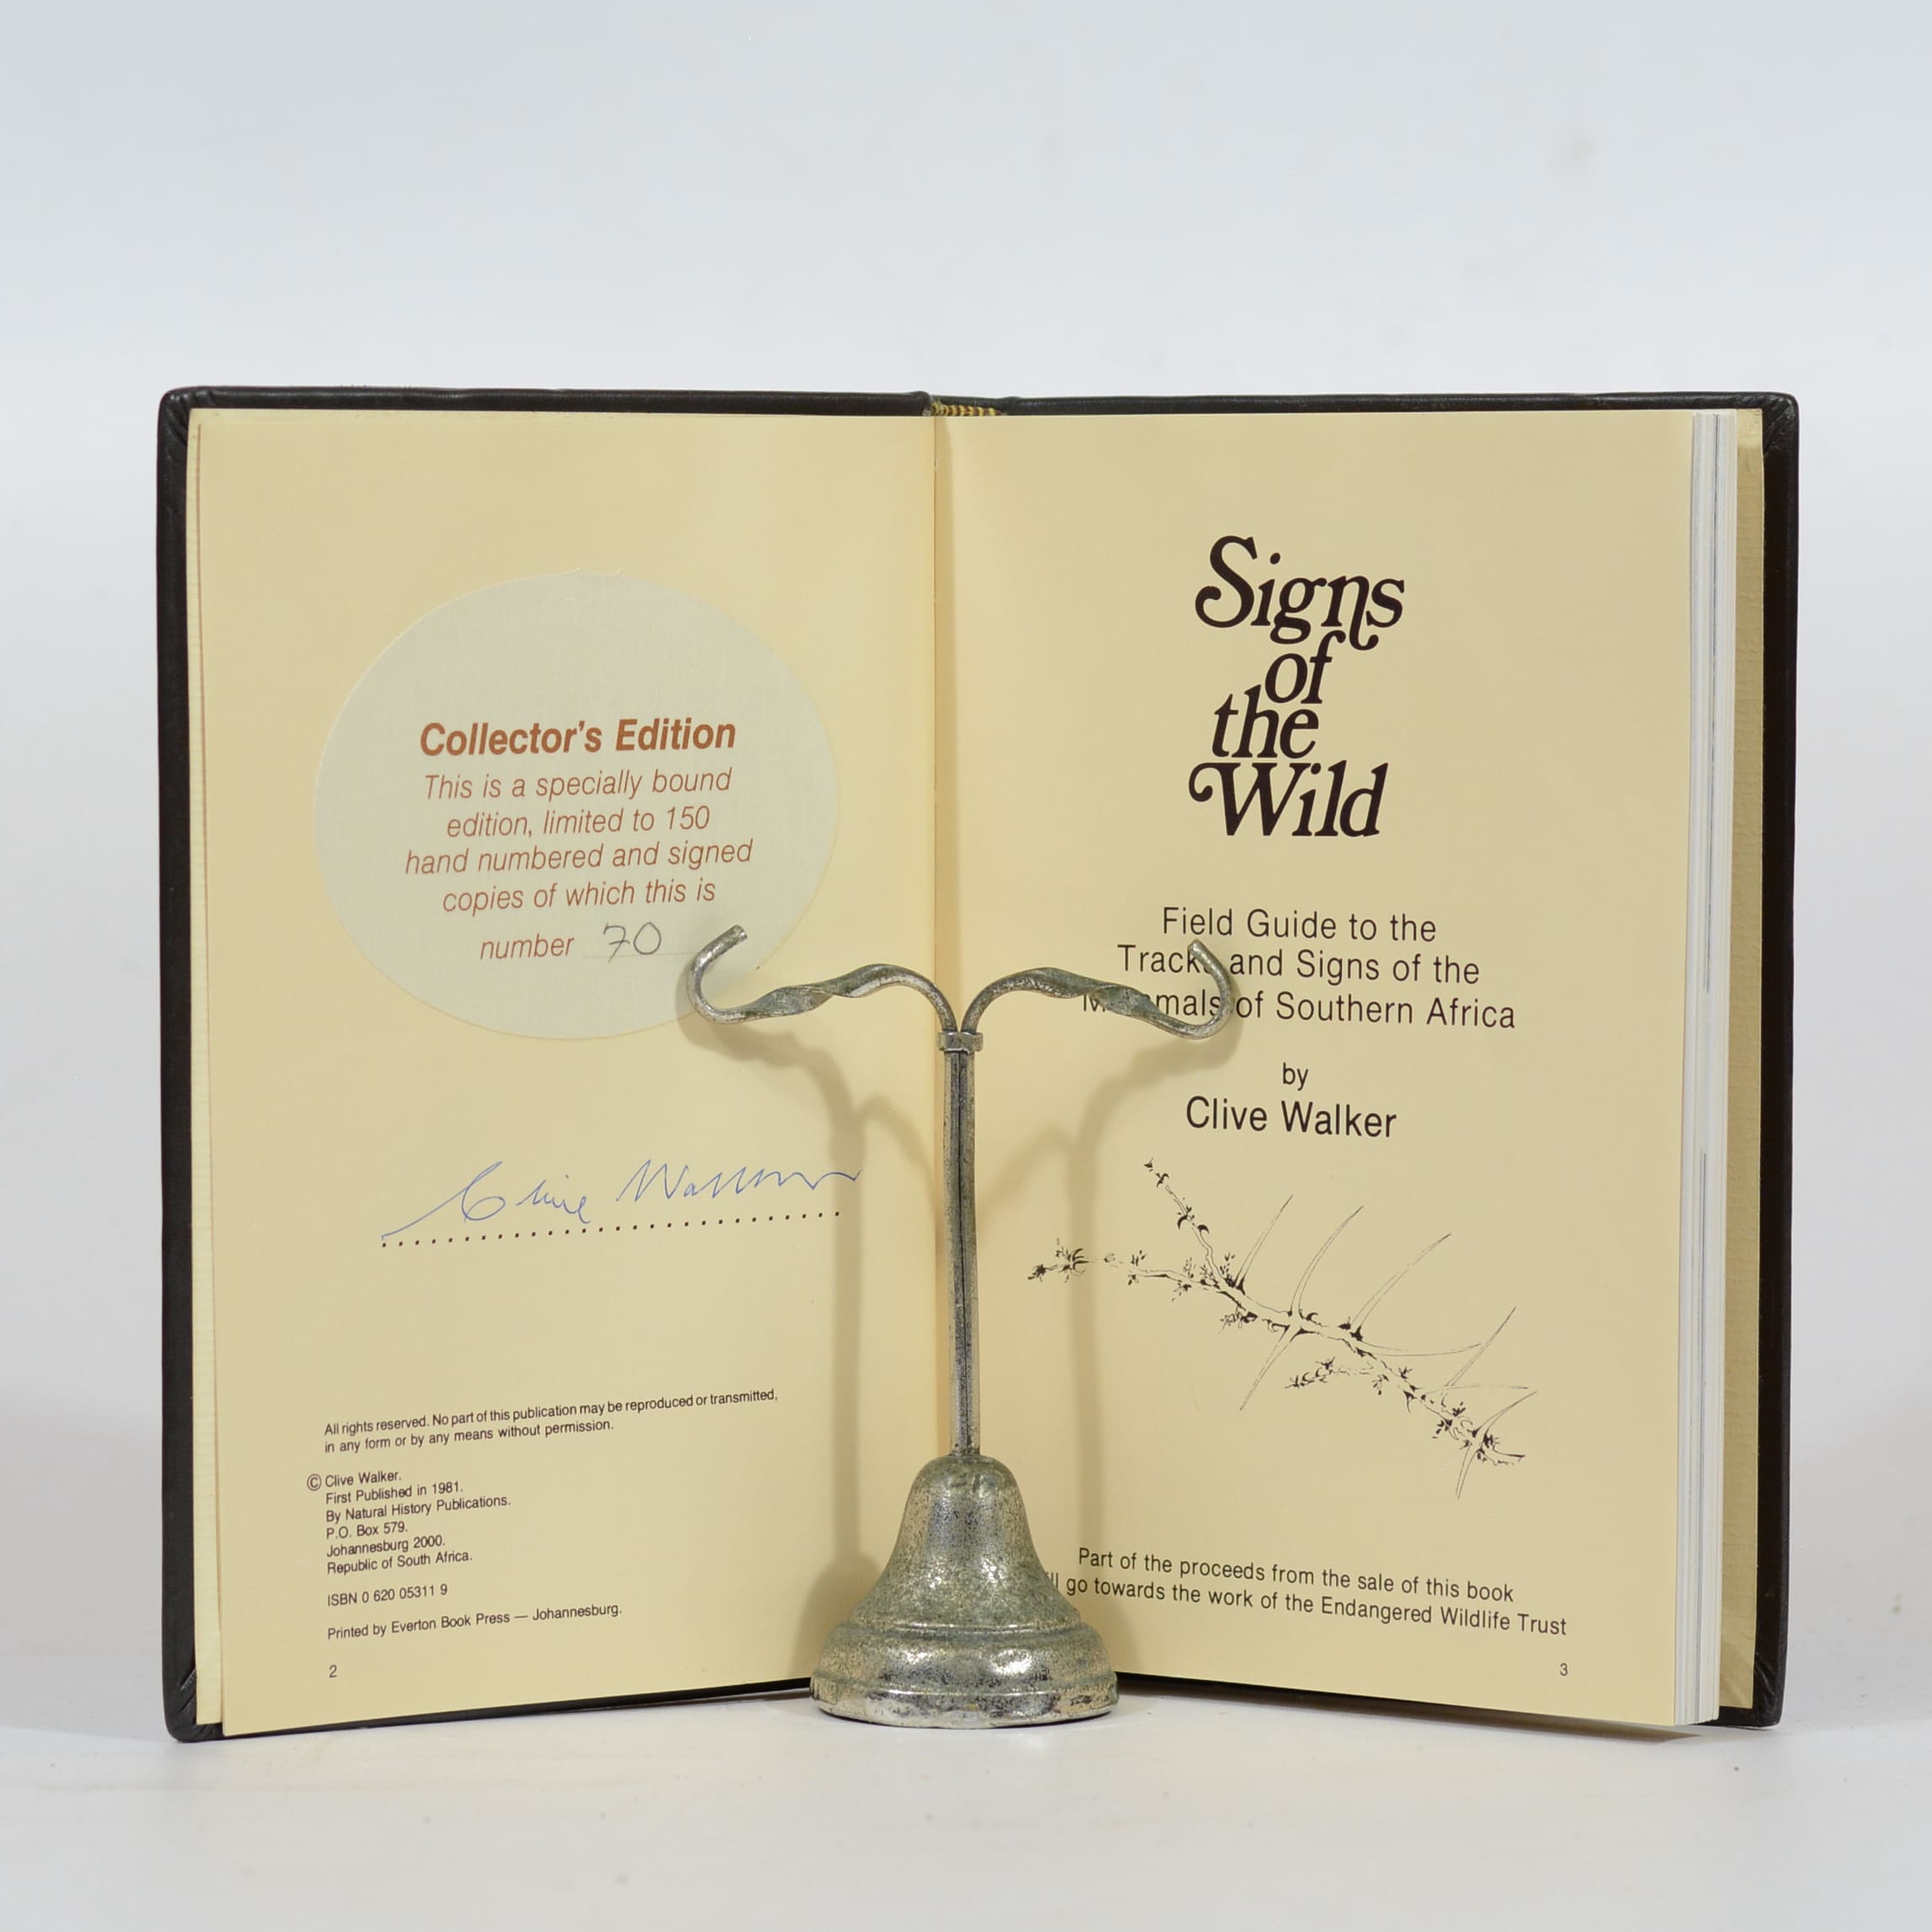 Collector's Edition
This is a specially bound
edition, limited to 150
hand numbered and signed
copies of which this is
number 70
Clive Walker
All rights reserved. No part of this publication may be reproduced or transmitted,
in any form or by any means without permission.
© Clive Walker.
First Published in 1981.
By Natural History Publications.
P.O. Box 579.
Johannesburg 2000.
Republic of South Africa.
ISBN 0 620 05311 9
Printed by Everton Book Press — Johannesburg.
2
Signs
of
the
Wild
Field Guide to the
Tracks and Signs of the
Mammals of Southern Africa
by
Clive Walker
Part of the proceeds from the sale of this book
go towards the work of the Endangered Wildlife Trust
3